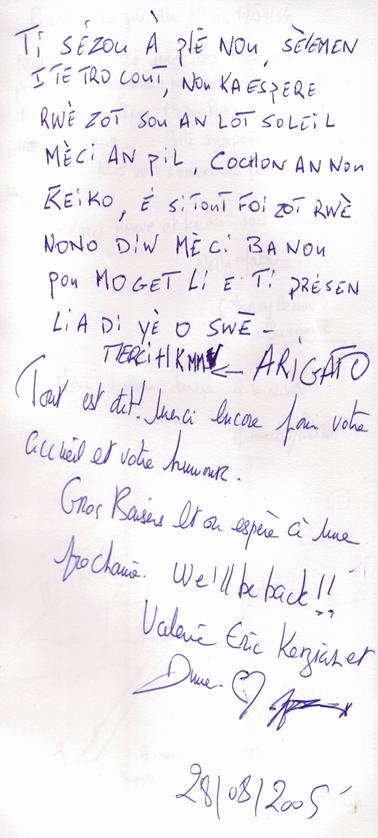 TI SÉZOU À PLÈ NOU, SÈLEMEN
I TE TRO COUT, NOU KA ESPERE
RWÈ ZOT SOU AN LOT SOLEIL
MÈCI AN PIL, COCHON AN NOU
KEIKO, É SI TOUT FOI ZOT RWÈ
NONO DIW MÈCI BA NOU
POU MOGET LI E TI PRÉSEN
LI A DI YÈ O SWÈ -
MERCI ← ARIGATO
Tout est dit! Merci encore pour votre
accueil et votre humour.
Gros Baisers et on espère à une
prochaine. We'll be back!!
Valérie Eric Kerzian et
Dune. ♡
28/08/2005